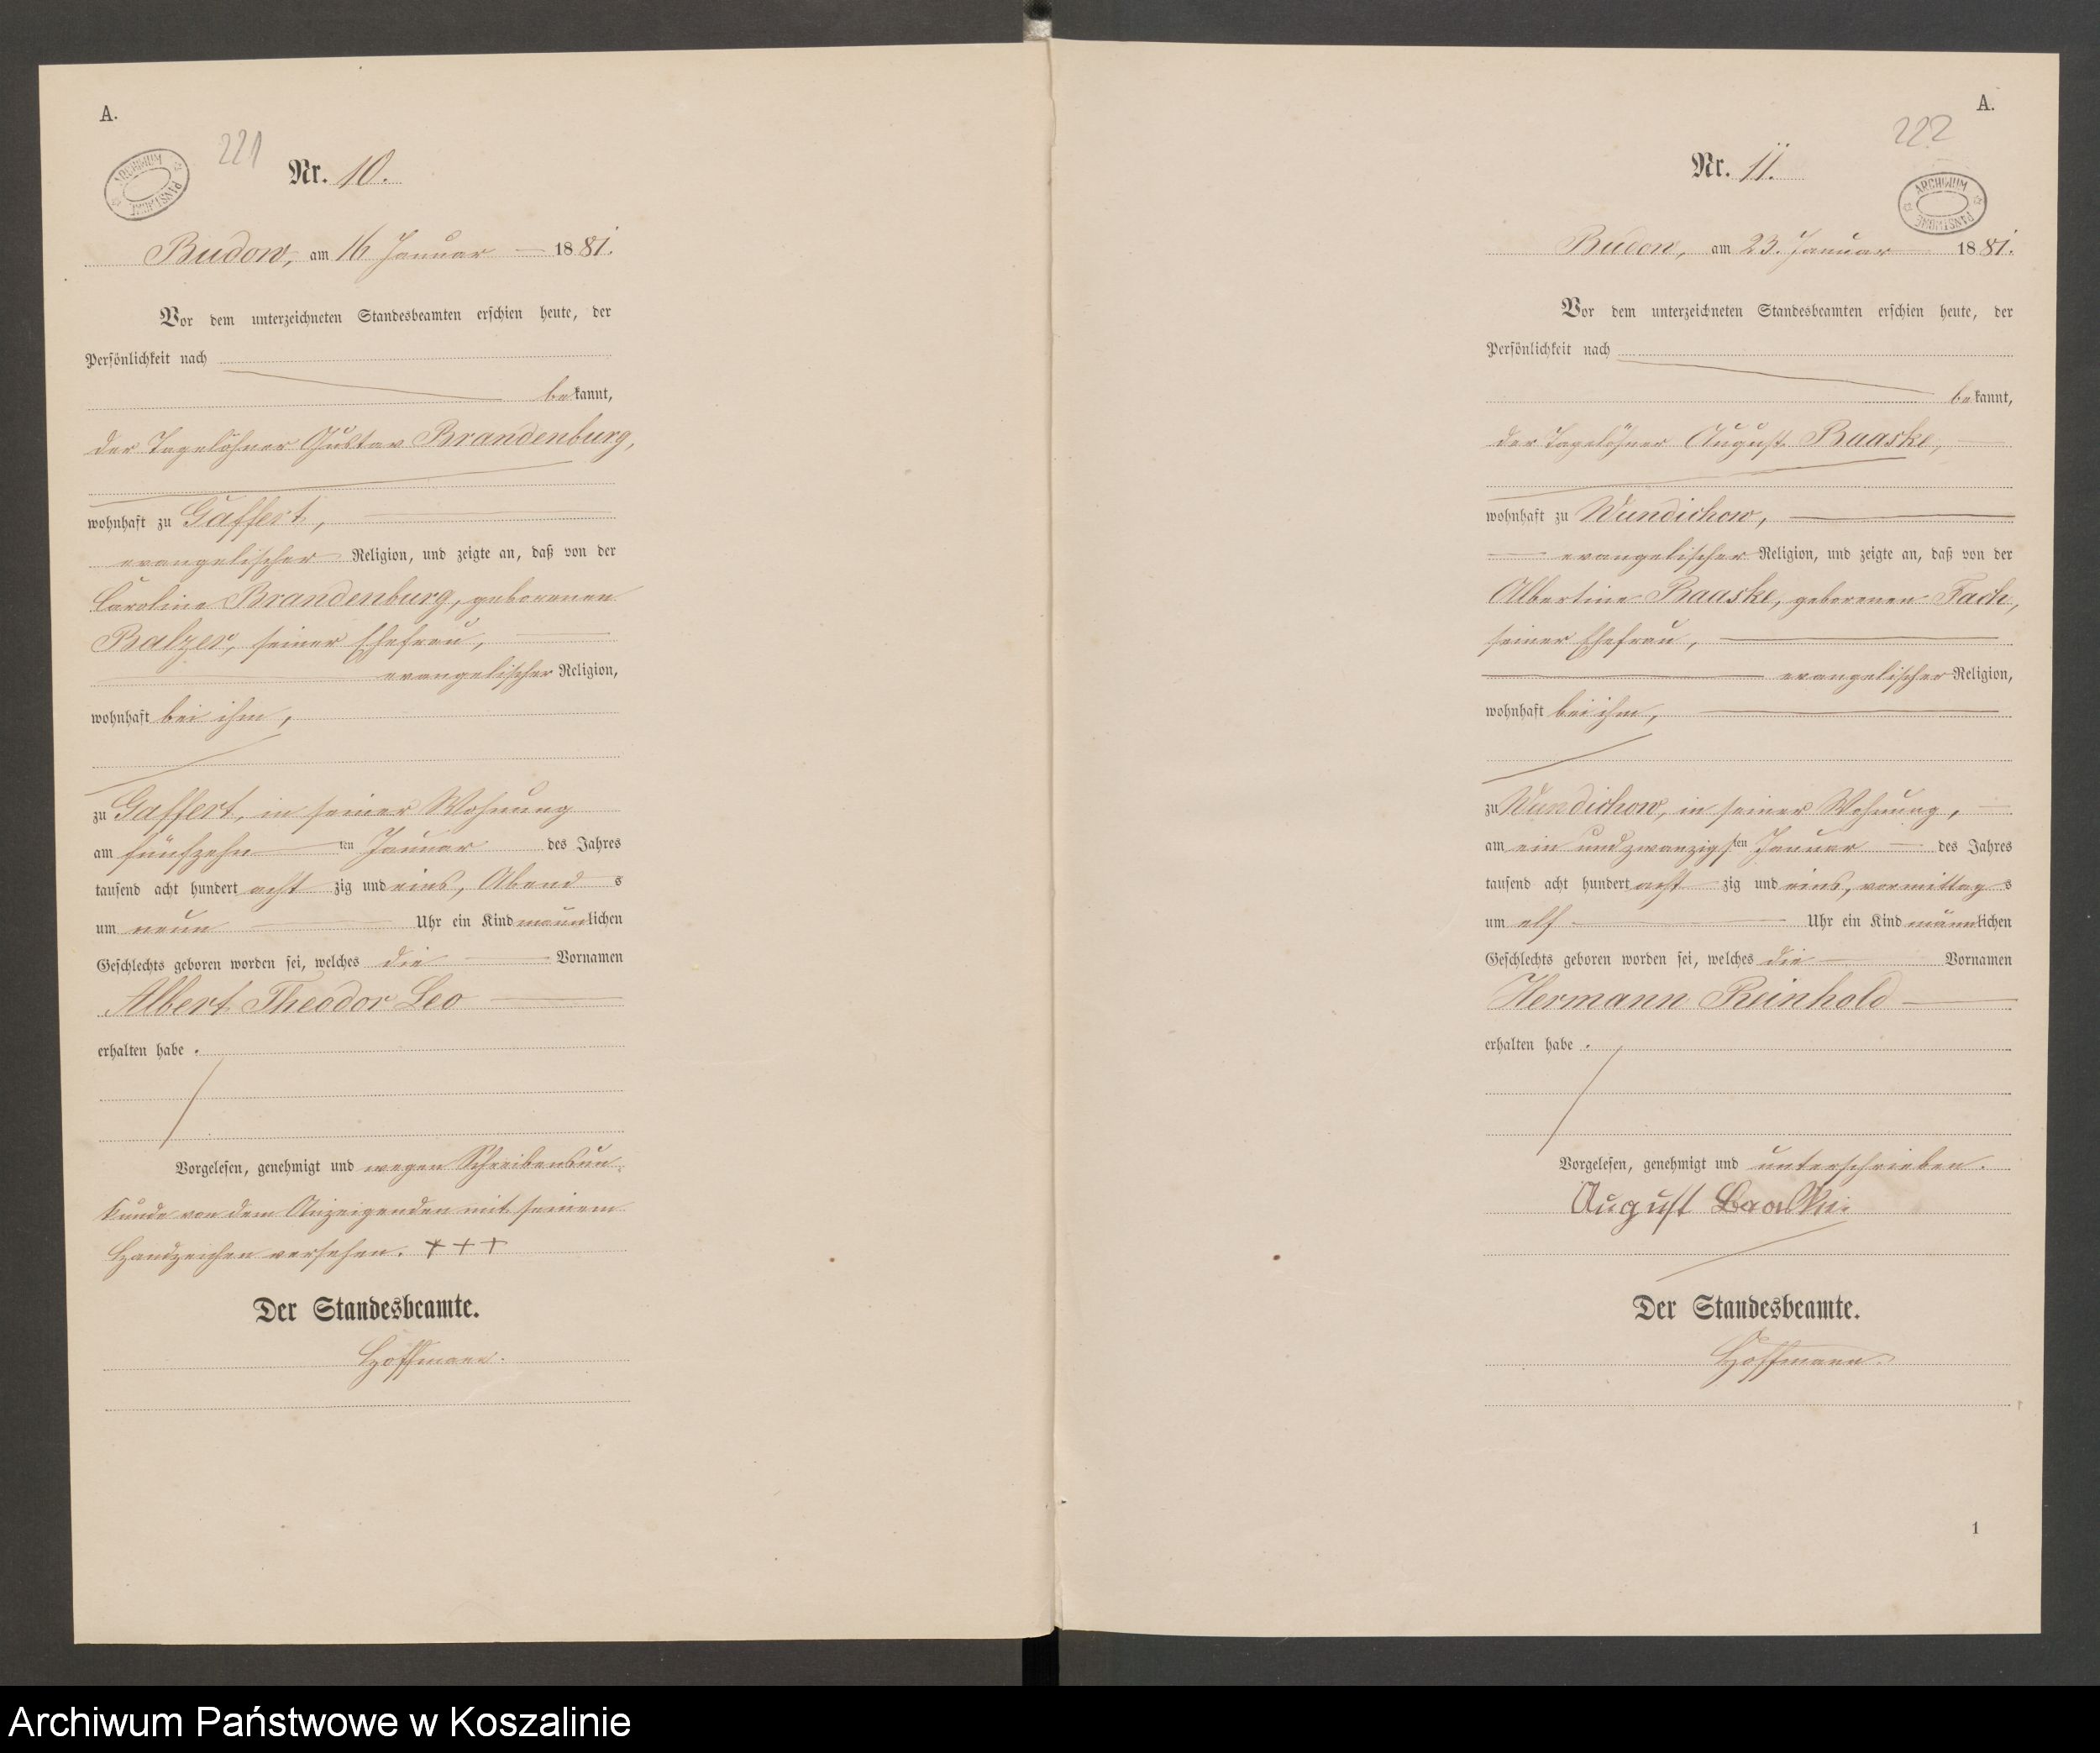 A.
221
ARCHIWUM PAŃSTWOWE
Nr. 10.
Budow, am 16 Januar 1881.
Vor dem unterzeichneten Standesbeamten erschien heute, der
Persönlichkeit nach
bekannt,
der Tagelöhner Gustav Brandenburg,
wohnhaft zu Gaffert,
evangelischer Religion, und zeigte an, daß von der
Caroline Brandenburg, geborenen
Balzer, seiner Ehefrau,
evangelischer Religion,
wohnhaft bei ihm,
zu Gaffert, in seiner Wohnung
am fünfzehnten Januar des Jahres
tausend acht hundert achtzig und eins, Abends
um neun Uhr ein Kind männlichen
Geschlechts geboren worden sei, welches die Vornamen
Albert Theodor Leo
erhalten habe.
Vorgelesen, genehmigt und wegen Schreibensun-
kunde von dem Anzeigenden mit seinem
Handzeichen versehen. +++
Der Standesbeamte.
Hoffmann.
A.
222
Nr. 11.
ARCHIWUM PAŃSTWOWE
Budow, am 23. Januar 1881.
Vor dem unterzeichneten Standesbeamten erschien heute, der
Persönlichkeit nach
bekannt,
der Tagelöhner August Baaske,
wohnhaft zu Wundichow,
evangelischer Religion, und zeigte an, daß von der
Albertine Baaske, geborenen Fach,
seiner Ehefrau,
evangelischer Religion,
wohnhaft bei ihm,
zu Wundichow, in seiner Wohnung,
am ein und zwanzigsten Januar des Jahres
tausend acht hundert achtzig und eins, vormittags
um elf Uhr ein Kind männlichen
Geschlechts geboren worden sei, welches die Vornamen
Hermann Reinhold
erhalten habe.
Vorgelesen, genehmigt und unterschrieben.
August Baaske
Der Standesbeamte.
Hoffmann.
1
Archiwum Państwowe w Koszalinie